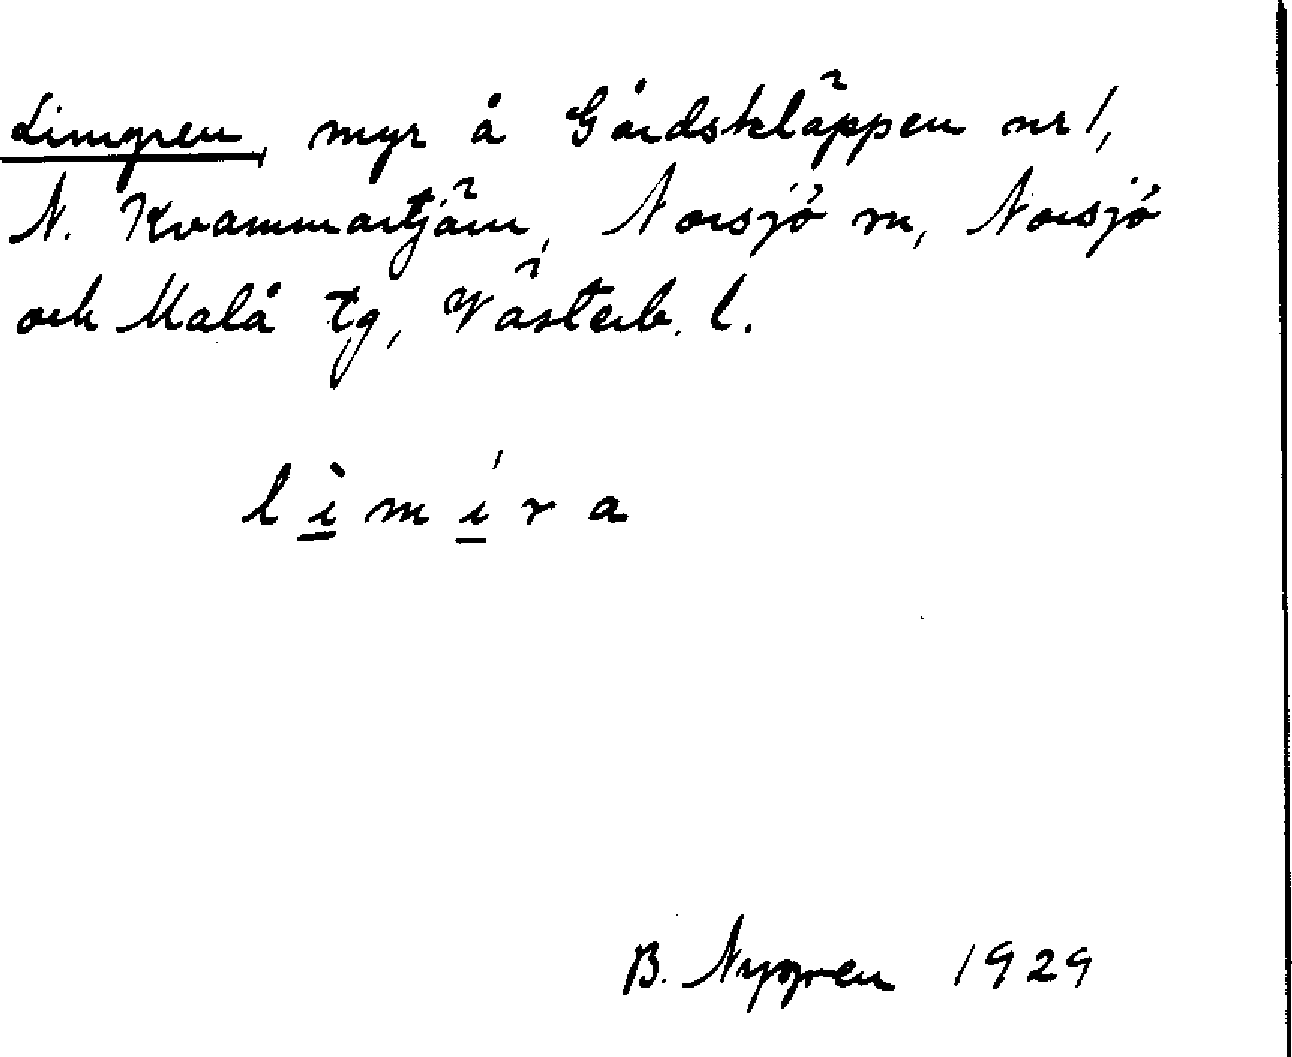 Limyren, myr å Gårdskläppen nr 1,
N. Kvammartjärn, Norsjö sn, Norsjö
och Malå tg, Västerb. l.
l ì̱ m í̱ r a
B. Nygren 1929